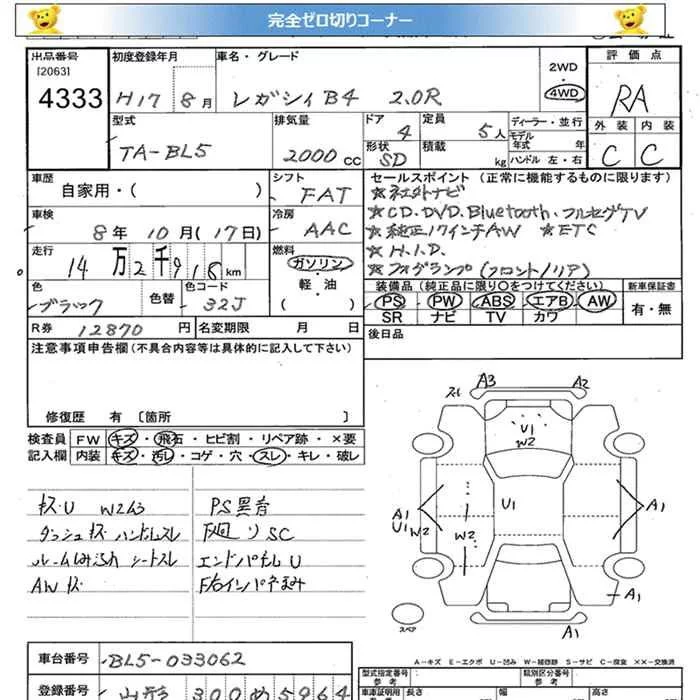 完全ゼロ切りコーナー
出品番号 初度登録年月 車名・グレード 評価点
[2063] 2WD
4333 H17 8月 レガシィB4 2.0R 4WD RA
型式 排気量 ドア 定員 ディーラー・並行 外装 内装
TA-BL5 2000cc 4 5人 モデル年式 年 C C
形状 SD 積載 kg ハンドル 左・右
車歴 シフト セールスポイント (正常に機能するものに限ります)
自家用・( ) FAT ☆社外ナビ
車検 冷房 ☆CD.DVD.Bluetooth.フルセグTV
8年10月(17日) AAC ☆純正17インチAW ☆ETC
走行 燃料 ☆H.I.D.
14万2千918km ガソリン ☆フォグランプ(フロント/リア)
・軽・油
色 色替 色コード ( ) 装備品(純正品に限り〇をつけてください) 新車保証書
ブラック 32J PS PW ABS エアB AW 有・無
SR ナビ TV カワ
R券 12870円 名変期限 月 日 後日品
注意事項申告欄(不具合内容等は具体的に記入して下さい)
修復歴 有〔箇所 〕
検査員 FW キズ・飛石・ヒビ割・リペア跡・×要
記入欄 内装 キズ・汚レ・コゲ・穴・スレ・キレ・破レ
キズU W2有 PS異音
ダッシュキズ ハンドルスレ 下廻りSC
シートスレ エンドパネルU
AWキズ
A3 A2
U1
W2
U1
A1 A1
U1 W2 W2
A1
A1
スペア
A-キズ E-エクボ U-凹み W-補修跡 S-サビ C-腐食 ××-交換済
車台番号 BL5-033062 型式指定番号 類別区分番号
参考 参考
登録番号 山形 300 め 5964 車庫証明用 長さ 幅 高さ